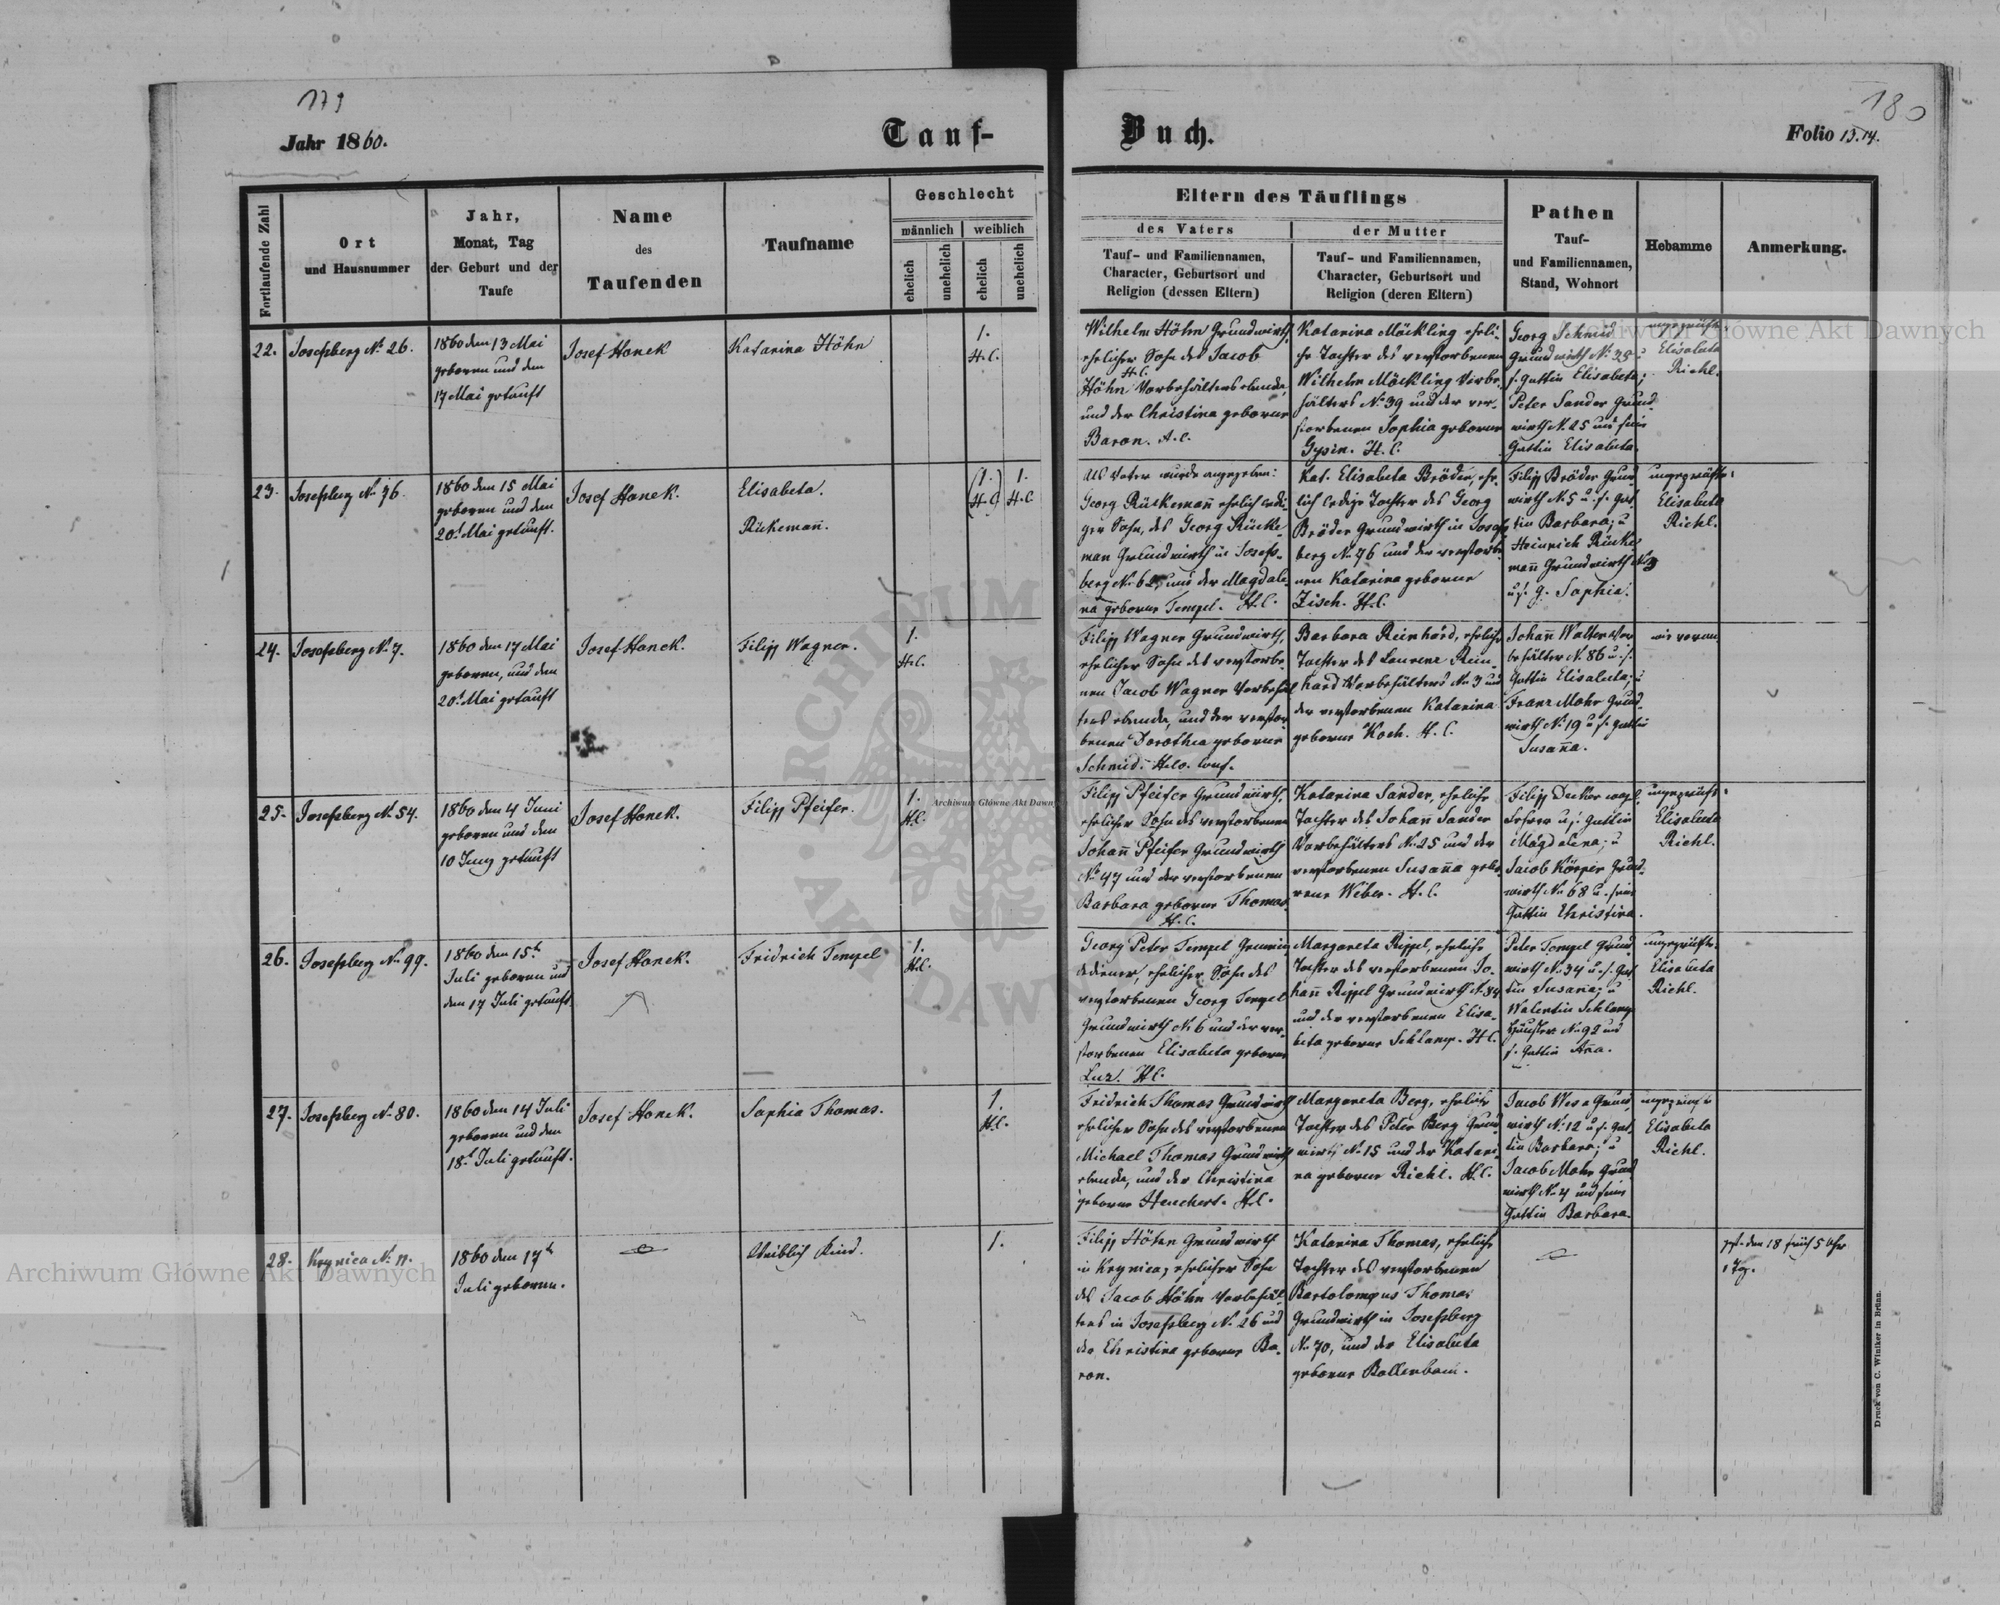 179
180
Jahr 1860.
Tauf-
Buch.
Folio 13.14.
Fortlaufende Zahl
Ort
und Hausnummer
Jahr,
Monat, Tag
der Geburt und der
Taufe
Name
des
Taufenden
Taufname
Geschlecht
männlich
weiblich
ehelich
unehelich
ehelich
unehelich
Eltern des Täuflings
des Vaters
Tauf- und Familiennamen,
Character, Geburtsort und
Religion (dessen Eltern)
der Mutter
Tauf- und Familiennamen,
Character, Geburtsort und
Religion (deren Eltern)
Pathen
Tauf-
und Familiennamen,
Stand, Wohnort
Hebamme
Anmerkung.
22.
Josefsberg No 26.
1860 den 13 Mai
geboren und den
17 Mai getauft
Josef Honek
Katarina Höhn
1.
H.C.
Wilhelm Höhn Grundwirth,
ehelicher Sohn des Jacob
H.C.
Höhn Vorbehälters ebenda,
und der Christina geborne
Baron. A.C.
Katarina Möckling eheli-
che Tochter des verstorbenen
Wilhelm Möckling Vorbe-
hälters No 39 und der ver-
storbenen Sophia geborne
Gysin. H.C.
Georg Schmid
Grundwirth No 35 u
s. Gattin Elisabeta;
Peter Sander Grund-
wirth N. 25 und seine
Gattin Elisabeta.
ungeprüfte
Elisabeta
Riehl.
23.
Josefsberg No 76.
1860 den 15 Mai
geboren und den
20. Mai getauft.
Josef Honek.
Elisabeta.
Rückemañ.
(1.)
(H.C.)
1.
H.C.
Als Vater wurde angegeben:
Georg Rückemañ ehelich ledi-
ger Sohn, des Georg Rücke-
man Grundwirth in Josefs-
berg No 62, und der Magdale-
na geborne Tempel. H.C.
Kat. Elisabeta Bröder, ehe-
lich ledige Tochter des Georg
Bröder Grundwirth in Josefs-
berg No 76 und der verstorbe-
nen Katarina geborne
Zisch. H.C.
Filipp Bröder Grund-
wirth N. 5 u. s. Gat-
tin Barbara; u
Heinrich Rücke-
mañ Grundwirth No 3
u. s. G. Sophia.
ungeprüfte:
Elisabeta
Riehl.
24.
Josefsberg No 7.
1860 den 17 Mai
geboren, und den
20. Mai getauft
Josef Honek.
Filipp Wagner.
1.
H.C.
Filipp Wagner Grundwirth,
ehelicher Sohn des verstorbe-
nen Jacob Wagner Vorbehäl-
ters ebenda, und der verstor-
benen Dorothea geborne
Schmid. Helv. Conf.
Barbara Reinhard, eheliche
Tochter des Laurenz Rein-
hard Vorbehälters No 3 und
der verstorbenen Katarina
geborne Koch. H.C.
Johañ Walter Vor-
behälter N. 86 u. s.
Gattin Elisabeta; u
Franz Mohr Grund-
wirth No 19 u. s. Gattin
Susaña.
wie voran
25.
Josefsberg No 54.
1860 den 4 Juni
geboren und den
10 Juny getauft
Josef Honek.
Filipp Pfeifer.
1.
H.C.
Filipp Pfeifer Grundwirth,
ehelicher Sohn des verstorbenen
Johañ Pfeifer Grundwirth
No 47 und der verstorbenen
Barbara geborne Thomas.
H.C.
Katarina Sander, eheliche
Tochter des Johañ Sander
Vorbehälters No 25 und der
verstorbenen Susaña gebo-
rene Weber. H.C.
Filipp Decker evgl.
Lehrer u. s. Gattin
Magdalena; u
Jacob Körper Grund-
wirth No 68 u. seine
Gattin Christina.
ungeprüft:
Elisabeta
Riehl.
26.
Josefsberg No 99.
1860 den 15t
Juli geboren und
den 17 Juli getauft
Josef Honek.
Fridrich Tempel
1.
H.C.
Georg Peter Tempel Gemein-
dediener, ehelicher Sohn des
verstorbenen Georg Tempel
Grundwirth N. 6 und der ver-
storbenen Elisabeta geborne
Luz. H.C.
Margareta Rippel, eheliche
Tochter des verstorbenen Jo-
hañ Rippel Grundwirth N. 34
und der verstorbenen Elisa-
beta geborne Schlamp. H.C.
Peter Tempel Grund-
wirth No 34 u. s. Gat-
tin Susana; u
Valentin Schlamp
Häusler No 92 und
s. Gattin Aña.
ungeprüfte.
Elisabeta
Riehl.
27.
Josefsberg No 80.
1860 den 14 Juli
geboren und den
18t Juli getauft.
Josef Honek.
Sophia Thomas.
1.
H.C.
Fridrich Thomas Grundwirth
ehelicher Sohn des verstorbenen
Michael Thomas Grundwirth
ebenda, und der Christina
geborne Heuchert. H.C.
Margareta Berg, eheliche
Tochter des Peter Berg Grund-
wirth No 15 und der Katari-
na geborne Riehl. H.C.
Jacob Grund-
wirth No 12 u. s. Gat-
tin Barbara; u
Jacob Mohr Grund-
wirth No 4 und seine
Gattin Barbara.
Elisabeta
Riehl.
28.
Krynica No 11.
1860 den 17t
Juli geboren.
Weiblich Kind.
1.
Filipp Höhn Grundwirth
in Krynica, ehelicher Sohn
des Jacob Höhn Vorbehäl-
ters in Josefsberg No 26 und
der Christina geborne Ba-
ron.
Katarina Thomas, eheliche
Tochter des verstorbenen
Bartolomeus Thomas
Grundwirth in Josefsberg
No 70, und der Elisabeta
geborne Bollenbach.
gest. den 18 früh 5 Uhr
1 Tg.
Druck von C. Winiker in Brünn.
Archiwum Główne Akt Dawnych
Archiwum Główne Akt Dawnych
Archiwum Główne Akt Dawnych
ARCHIWUM
AKT DAWN